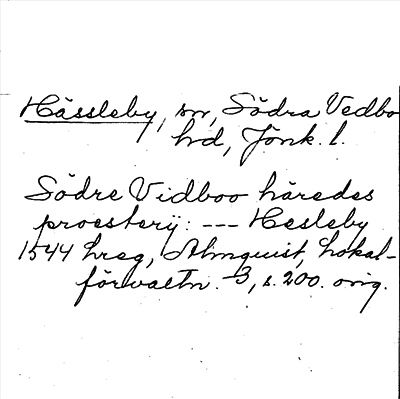 Hässleby, sn, Södra Vedbo
hd, Jönk. l.
Södre Vidboo häredes
proesterij: --- Hesleby
1544 hreg, Almquist, Lokal-
förvaltn. 3, s. 200. orig.